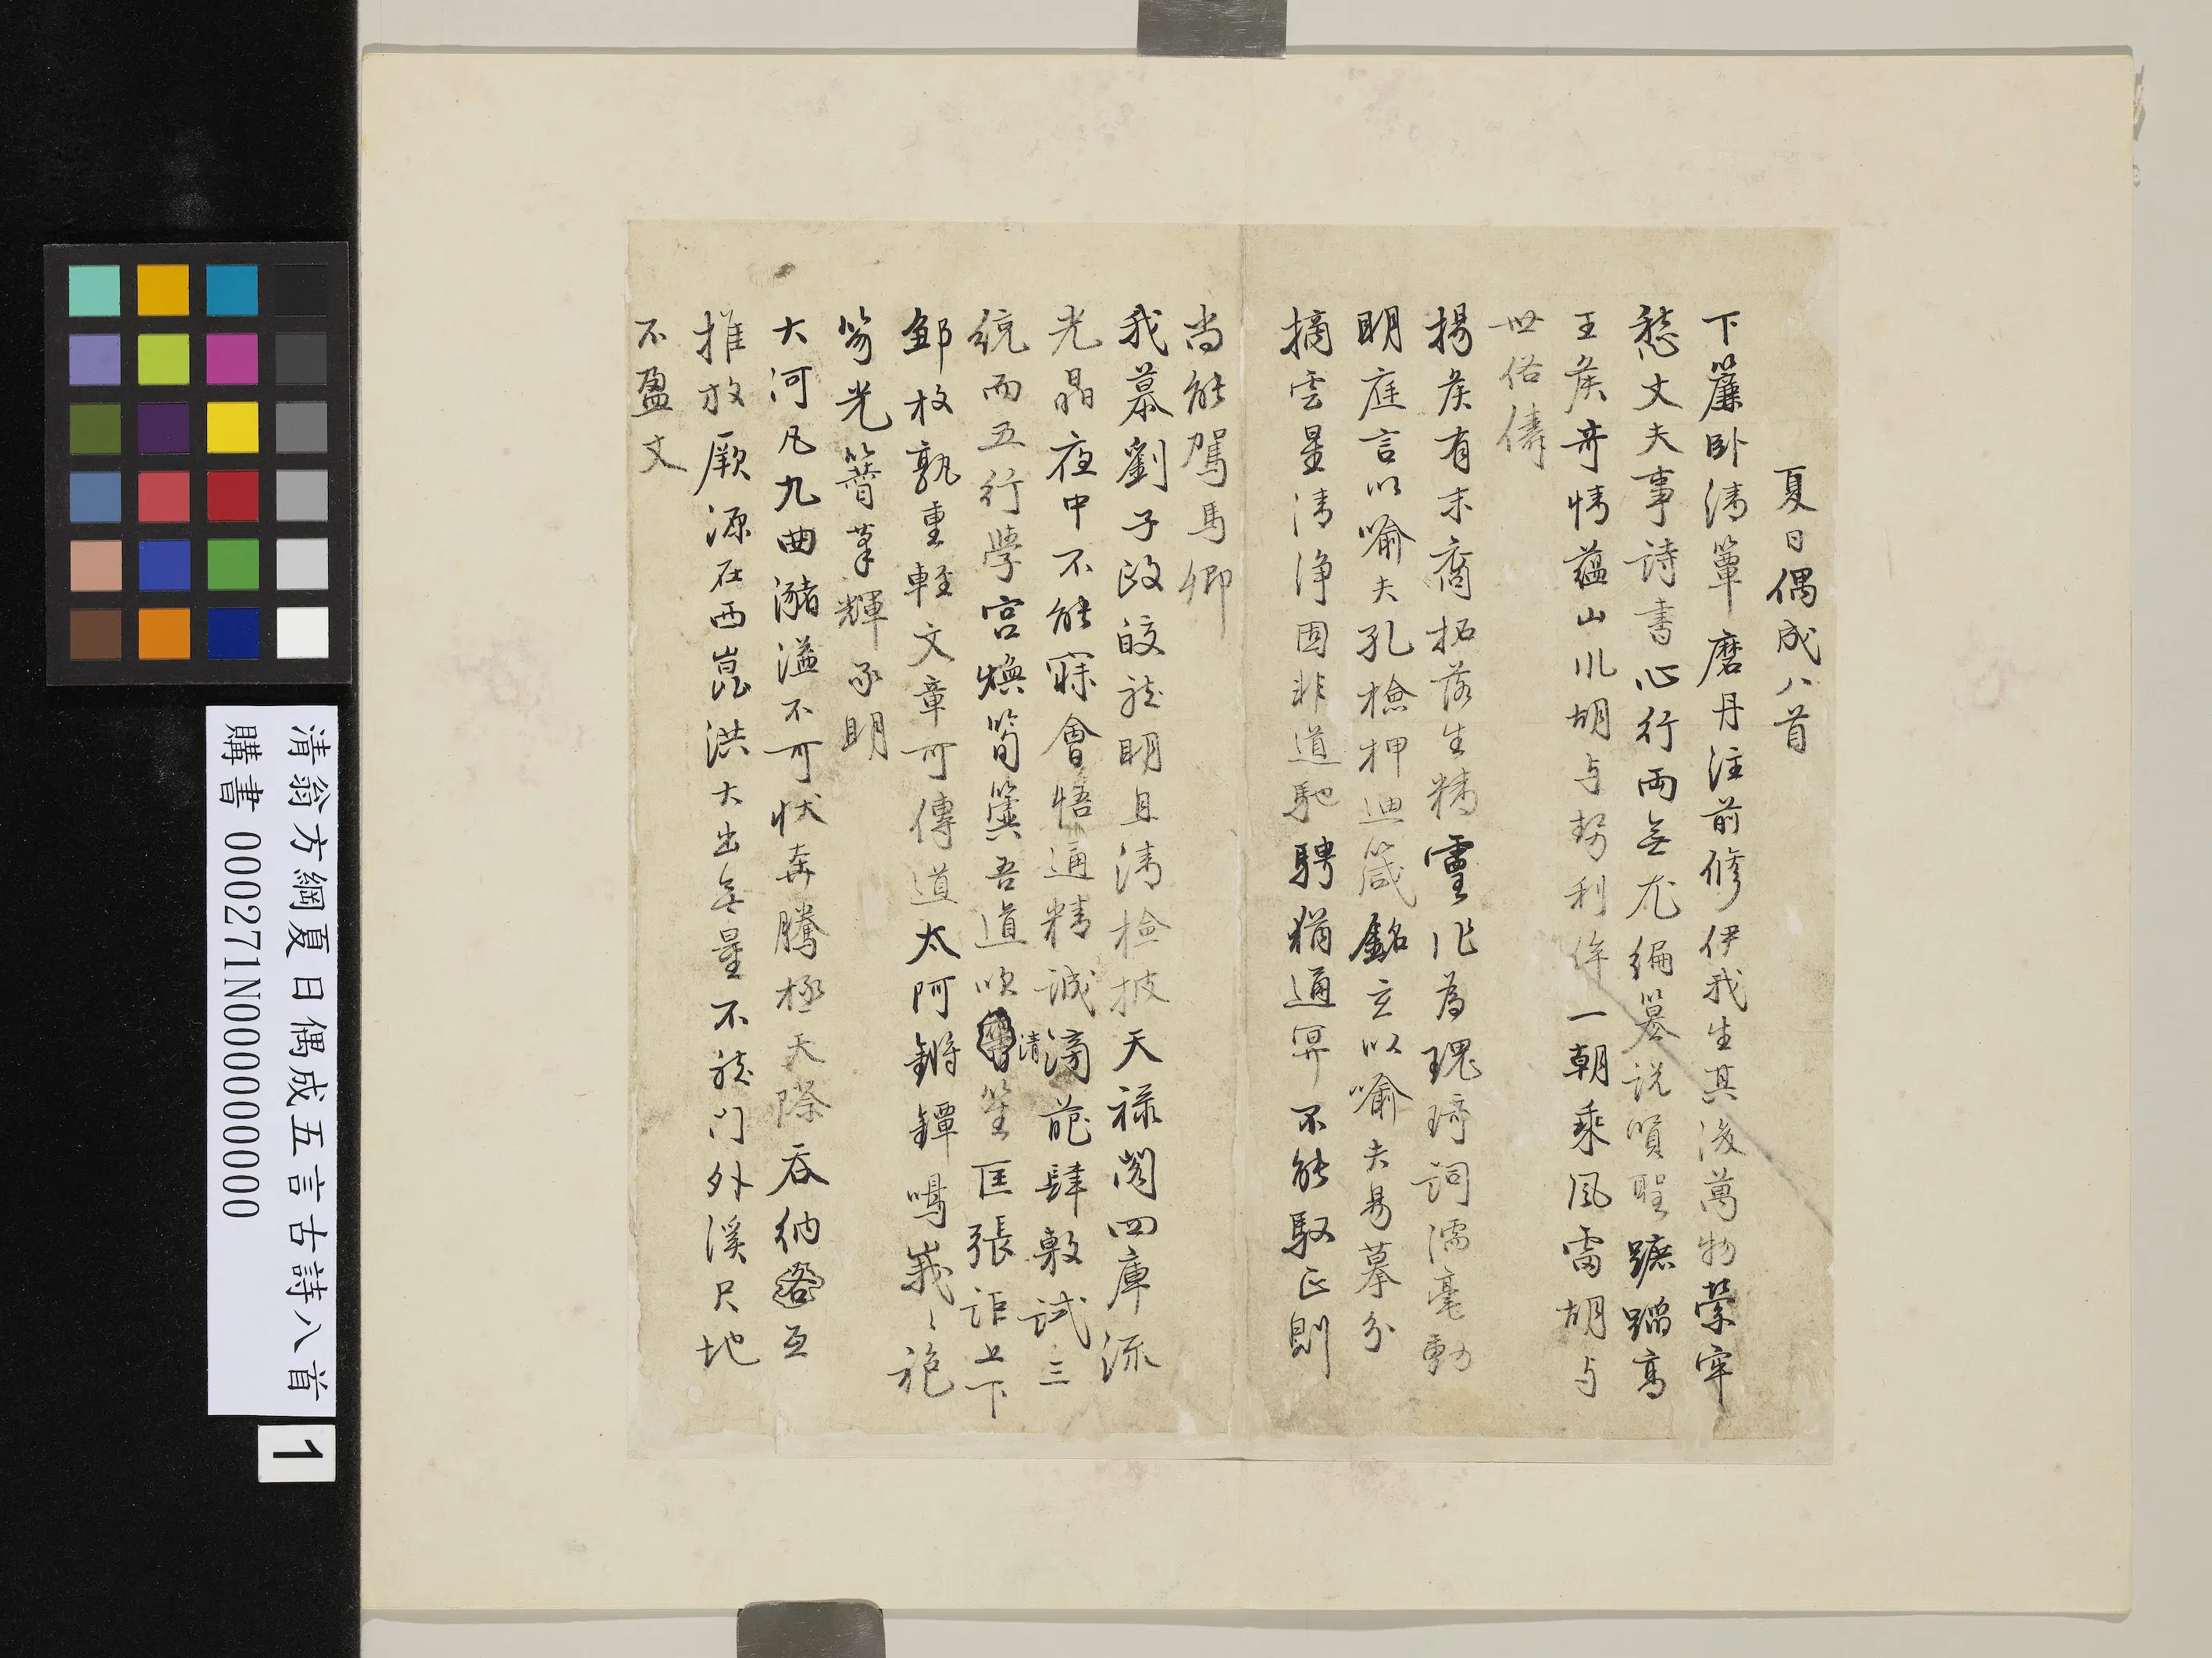 夏日偶成八首
下簾卧清簟磨丹注前修伊我生其後萬物縈牢
愁丈夫事詩書心行兩無尤編纂說嘖聖蹠蹯高
王侯奇情蘊山川胡与勢利侔一朝乘風雷胡与
世俗儔
揚侯有末裔拓落生精靈作為瑰琦詞濡毫動
明庭言以喻夫孔檢押迪箴銘玄以喻夫易摹分
摘雲星清淨固非道馳騁猶通冥不能馭正則
尚能駕馬卿
我慕劉子政皎然明且清檢披天祿閣四庫流
光晶夜中不能寐會悟通精誠清滂葩肆敷試三
統而五行學宮煥筍簴吾道吹笙匡張詎上下
鄒枚孰重輕文章可傳道太阿鏘鐔鳴峩〻
筍光簪筆輝承明
大河凡九曲瀦溢不可狀奔騰極天際吞納互
推放厥源在西崑洪大出無量不然门外溪尺地
不盈丈
清翁方綱夏日偶成五言古詩八首
購書 000271N000000000
1